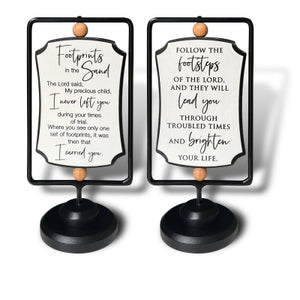 Footprints
in the
Sand
The Lord said,
My precious child,
I never left you
during your times
of trial.
Where you see only one
set of footprints, it was
then that
I carried you.
FOLLOW THE
footsteps
OF THE LORD,
AND THEY WILL
lead you
THROUGH
TROUBLED TIMES
AND brighten
YOUR LIFE.